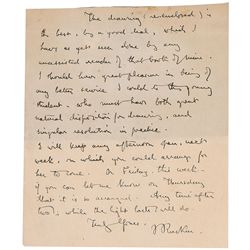 The drawing (re-enclosed) is
the best, by a good deal, which I
have as yet seen done by any
unassisted reader of that book of mine.
I should have great pleasure in being of
any better service I could to this young
student - who must have both great
natural disposition for drawing, and
singular resolution in practice.
I will keep any afternoon open, next
week, on which you could arrange for
her to come. On Friday, this week -
if you can let me know on Thursday
that it is so arranged - Any time after
two, while the light lasts, will do.
Truly Yours -
J Ruskin